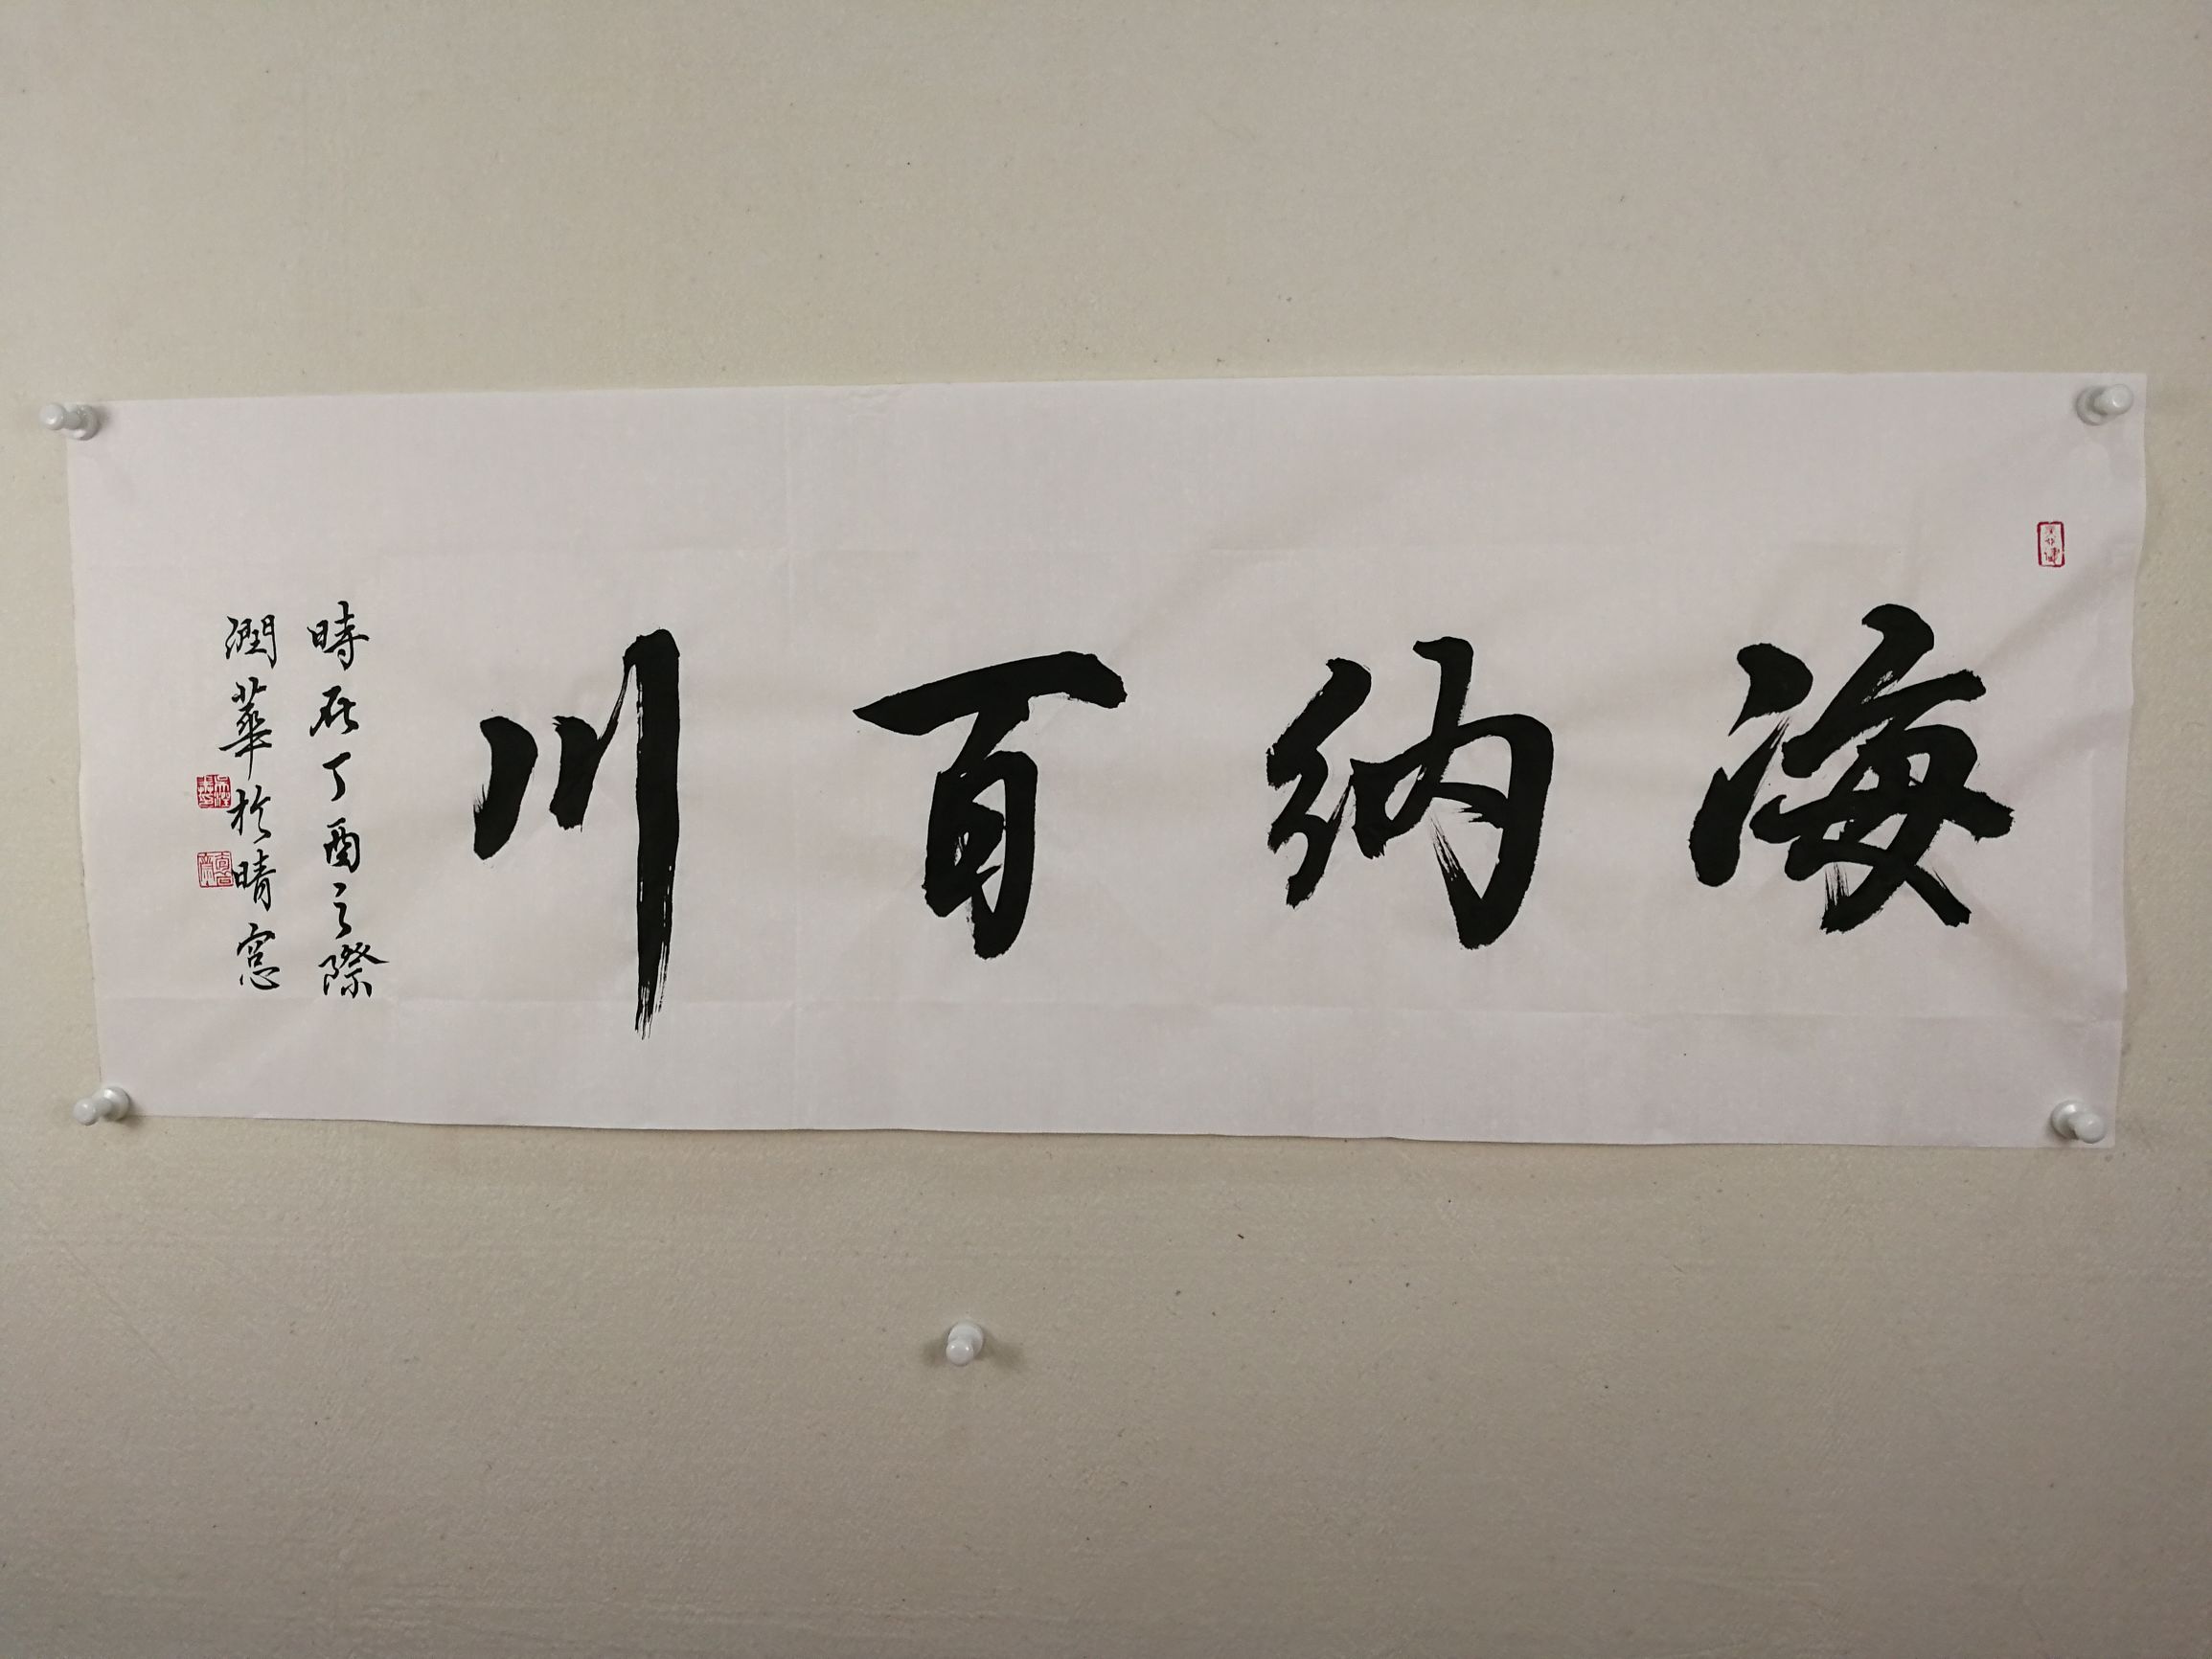 海納百川
時在丁酉之際
潤華於晴窓